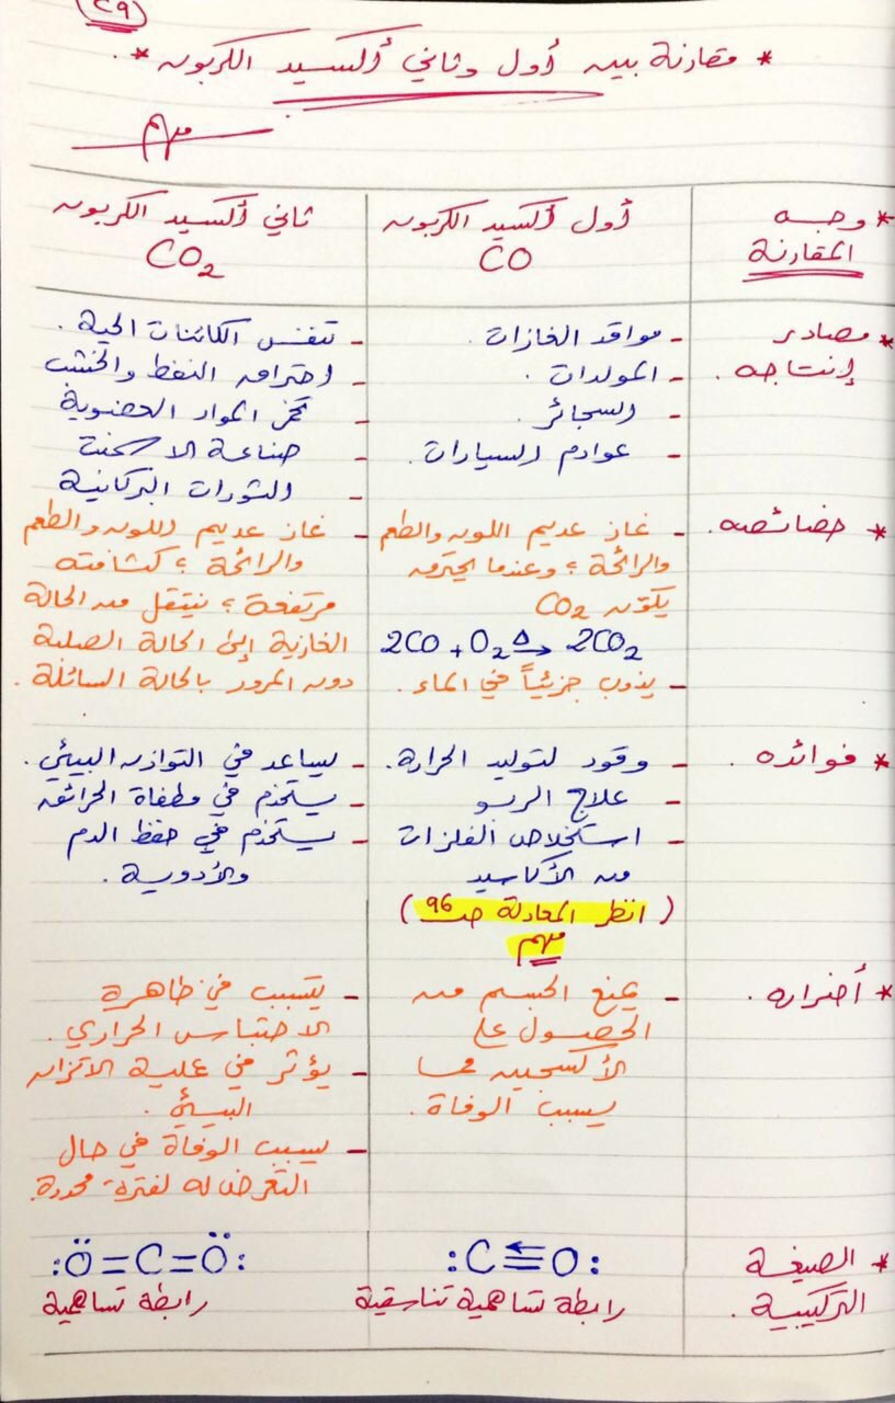 ٢٩
* مقارنة بين أول وثاني أكسيد الكربون *
مهم
* وجه المقارنة
أول أكسيد الكربون
CO
ثاني أكسيد الكربون
CO₂
* مصادر إنتاجه.
- مواقد الغازات.
- المولدات.
- السجائر.
- عوادم السيارات.
- تنفس الكائنات الحية.
- احتراق النفط والخشب
- تخمر المواد العضوية
- صناعة الاسمنت
- الثورات البركانية
* خصائصه.
- غاز عديم اللون والطعم
والرائحة ؛ وعندما يحترق
يكوّن CO₂
2CO + O₂ →Δ 2CO₂
- يذوب جزئياً في الماء.
- غاز عديم اللون والطعم
والرائحة ؛ كثافته
مرتفعة ؛ ينتقل من الحالة
الغازية إلى الحالة الصلبة
دون المرور بالحالة السائلة.
* فوائده.
- وقود لتوليد الحرارة.
- علاج الربو
- استخلاص الفلزات
من الأكاسيد
( انظر المعادلة ص 96 )
مهم
- يساعد في التوازن البيئي.
- يستخدم في مطفأة الحرائق
- يستخدم في حفظ الدم
والأدوية.
* أضراره.
- يمنع الجسم من
الحصول على
الأكسجين مما
يسبب الوفاة.
- يتسبب في ظاهرة
الاحتباس الحراري.
- يؤثر في عملية الاتزان
البيئي.
- يسبب الوفاة في حال
التعرض له لفترة محددة.
* الصيغة
التركيبية.
:C≡O:
رابطة تساهمية تناسقية
:Ö=C=Ö:
رابطة تساهمية